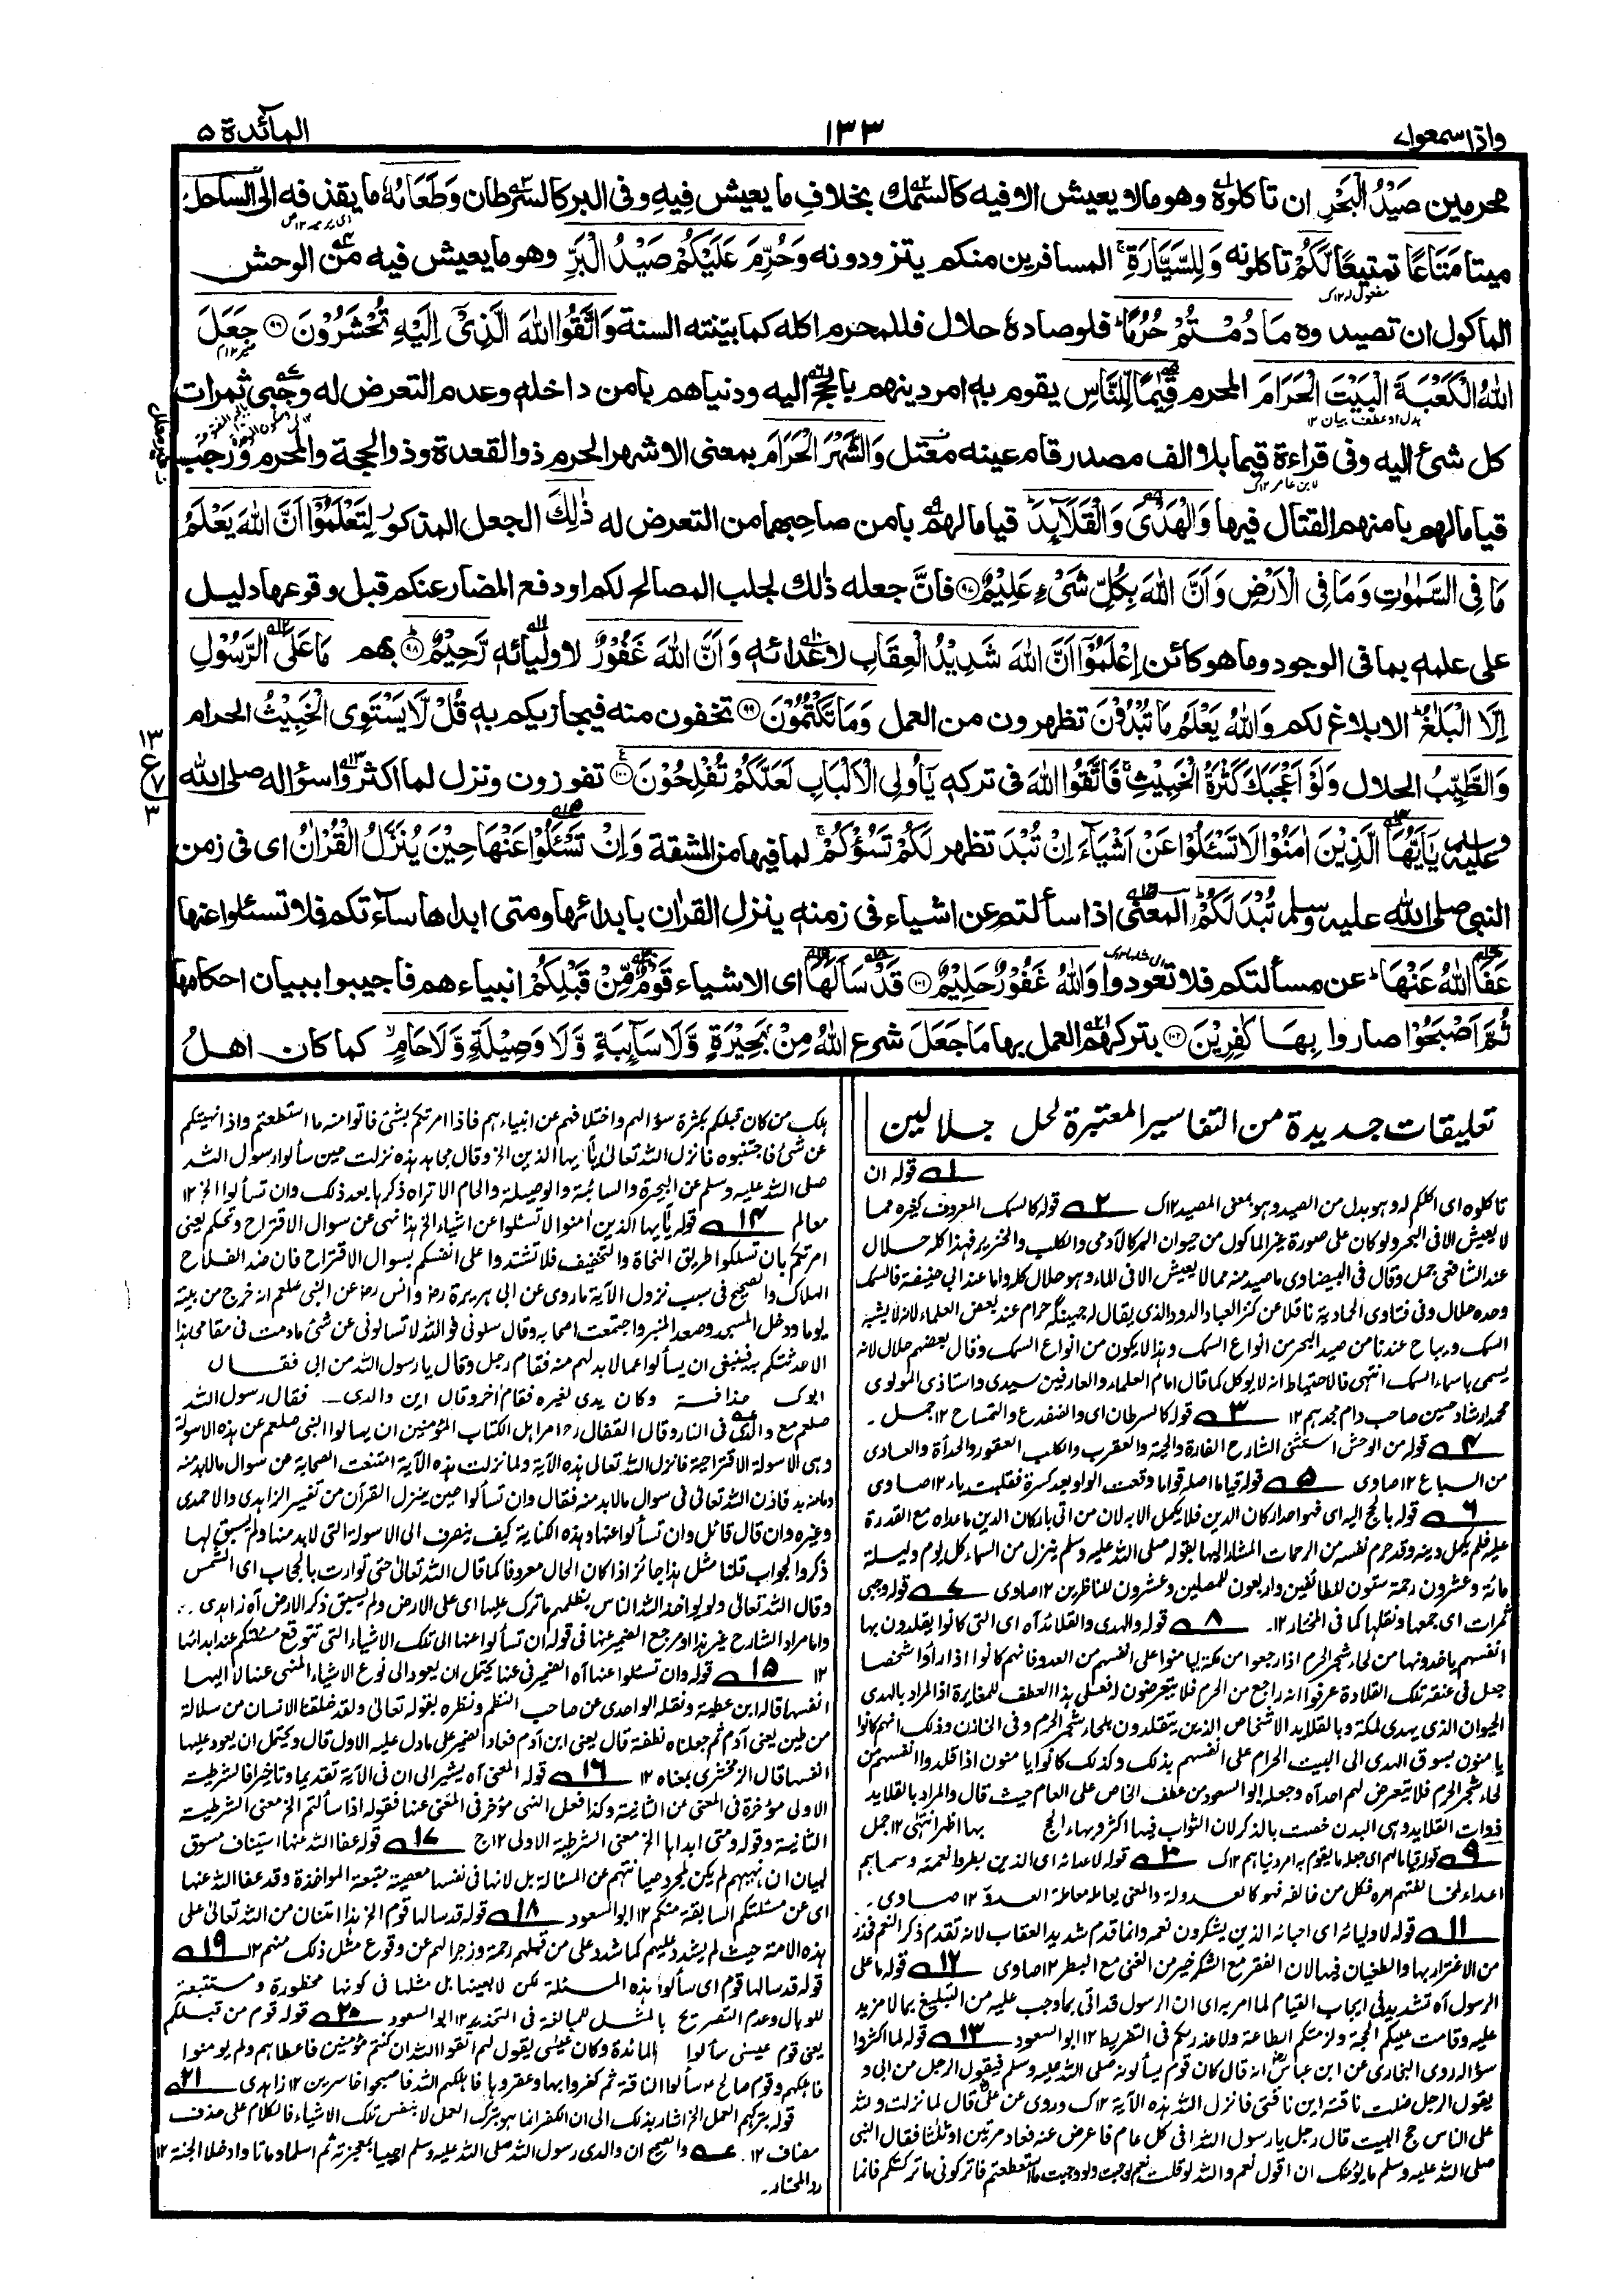 واذا سمعوا ۷
۱۳۳
المآئدة ۵
محرمين صَيْدُ الْبَحْرِ ان تاكلوه وهو مالا يعيش الا فيه كالسمك بخلاف ما يعيش فيه وفى البر كالسرطان وَطَعَامُهٗ ما يقذفه الى الساحل
ميتا مَتَاعًا تمتيعا لَّكُمْ تاكلونه وَلِلسَّيَّارَةِ ۚ المسافرين منكم يتزودونه وَحُرِّمَ عَلَيْكُمْ صَيْدُ الْبَرِّ وهو ما يعيش فيه من الوحش
الماكول ان تصيدوه مَا دُمْتُمْ حُرُمًا ؕ فلو صاده حلال فللمحرم اكله كما بينته السنة وَاتَّقُوا اللّٰهَ الَّذِىْٓ اِلَيْهِ تُحْشَرُوْنَ ۝۹۶ جَعَلَ
اللّٰهُ الْكَعْبَةَ الْبَيْتَ الْحَرَامَ المحرم قِيٰمًا لِّلنَّاسِ يقوم به امر دينهم بالحج اليه ودنياهم بامن داخله وعدم التعرض له وجبى ثمرات
كل شئ اليه وفى قراءة قيما بلا الف مصدر قام عينه معتل وَالشَّهْرَ الْحَرَامَ بمعنى الاشهر الحرم ذو القعدة وذو الحجة والمحرم ورجب
قياما لهم بامنهم القتال فيها وَالْهَدْىَ وَالْقَلَآئِدَ ؕ قياما لهم بامن صاحبهما من التعرض له ذٰلِكَ الجعل المذكور لِتَعْلَمُوْٓا اَنَّ اللّٰهَ يَعْلَمُ
مَا فِى السَّمٰوٰتِ وَمَا فِى الْاَرْضِ وَاَنَّ اللّٰهَ بِكُلِّ شَىْءٍ عَلِيْمٌ ۝۹۷ فان جعله ذلك لجلب المصالح لكم او دفع المضار عنكم قبل وقوعها دليل
على علمه بما فى الوجود وما هو كائن اِعْلَمُوْٓا اَنَّ اللّٰهَ شَدِيْدُ الْعِقَابِ لاعدائه وَاَنَّ اللّٰهَ غَفُوْرٌ لاوليائه رَّحِيْمٌ ۝۹۸ بهم مَا عَلَى الرَّسُوْلِ
اِلَّا الْبَلٰغُ ؕ الابلاغ لكم وَاللّٰهُ يَعْلَمُ مَا تُبْدُوْنَ تظهرون من العمل وَمَا تَكْتُمُوْنَ ۝۹۹ تخفون منه فيجازيكم به قُلْ لَّا يَسْتَوِى الْخَبِيْثُ الحرام
وَالطَّيِّبُ الحلال وَلَوْ اَعْجَبَكَ كَثْرَةُ الْخَبِيْثِ ۚ فَاتَّقُوا اللّٰهَ فى تركه يٰٓاُولِى الْاَلْبَابِ لَعَلَّكُمْ تُفْلِحُوْنَ ۝۱۰۰ تفوزون ونزل لما اكثروا سؤاله صلى الله
عليه وسلم يٰٓاَيُّهَا الَّذِيْنَ اٰمَنُوْا لَا تَسْئَلُوْا عَنْ اَشْيَآءَ اِنْ تُبْدَ تظهر لَكُمْ تَسُؤْكُمْ ۚ لما فيها من المشقة وَاِنْ تَسْئَلُوْا عَنْهَا حِيْنَ يُنَزَّلُ الْقُرْاٰنُ اى فى زمن
النبى صلى الله عليه وسلم تُبْدَ لَكُمْ ؕ المعنى اذا سألتم عن اشياء فى زمنه ينزل القران بابدائها ومتى ابداها ساءتكم فلا تسئلوا عنها
عَفَا اللّٰهُ عَنْهَا ؕ عن مسألتكم فلا تعودوا وَاللّٰهُ غَفُوْرٌ حَلِيْمٌ ۝۱۰۱ قَدْ سَاَلَهَا اى الاشياء قَوْمٌ مِّنْ قَبْلِكُمْ انبياءهم فاجيبوا ببيان احكامها
ثُمَّ اَصْبَحُوْا صاروا بِهَا كٰفِرِيْنَ ۝۱۰۲ بتركهم العمل بها مَا جَعَلَ شرع اللّٰهُ مِنْۢ بَحِيْرَةٍ وَّلَا سَآئِبَةٍ وَّلَا وَصِيْلَةٍ وَّلَا حَامٍ ۙ كما كان اهل
۱۳
ع
۷
۳
تعليقات جديدة من التفاسير المعتبرة لحل جلالين
۱ قوله ان
تاكلوه اى اكلكم له وهو بدل من الصيد وهو بمعنى المصيد ۱۲ك ۲ قوله كالسمك المعروف كغيره مما
لا يعيش الا فى البحر ولو كان على صورة غير الماكول من حيوان البر كالآدمى والكلب والخنزير فهذا كله حلال
عند الشافعى جمل وقال فى البيضاوى ما صيد منه مما لا يعيش الا فى الماء وهو حلال كله واما عند ابى حنيفة فالسمك
وحده حلال وفى فتاوى الحمادية ناقلا عن كنز العباد الدود الذى يقال له جهينگه حرام عند بعض العلماء لانه لا يشبه
السمك ويباح عندنا من صيد البحر انواع السمك وهذا لا يكون من انواع السمك وقال بعضهم حلال لانه
يسمى باسم السمك انتهى فالاحتياط انه لا يوكل كما قال امام العلماء والعارفين سيدى واستاذى المولوى
محمد ارشاد حسين صاحب دام مجدهم ۱۲ ۳ قوله كالسرطان اى والضفدع والتمساح ۱۲ جمل۔
۴ قوله من الوحش استثنى الشارح الفارة والحية والعقرب والكلب العقور والحدأة والعادى
من السباع ۱۲ صاوى ۵ قوله قياما اصله قواما وقعت الواو بعد كسرة فقلبت ياء ۱۲ صاوى
۶ قوله بالحج اليه اى فهو احد اركان الدين فلا يكمل الا به لان من اتى باركان الدين ما عداه مع القدرة
عليه فلم يكمل دينه وقد حرم نفسه من الرحمات المشار اليها بقوله صلى الله عليه وسلم ينزل من السماء كل يوم وليلة
مائة وعشرون رحمة ستون للطائفين واربعون للمصلين وعشرون للناظرين ۱۲ صاوى ۷ قوله وجبى
ثمرات اى جمعها ونقلها كما فى المختار ۱۲۔ ۸ قوله والهدى والقلائد آه اى التى كانوا يقلدون بها
انفسهم ياخذونها من لحاء شجر الحرم اذا رجعوا من مكة ليامنوا على انفسهم من العدو فانهم كانوا اذا رأوا شخصا
جعل فى عنقه تلك القلادة عرفوا انه راجع من الحرم فلا يتعرضون له فعلى هذا العطف للمغايرة اذ المراد بالهدى
الحيوان الذى يهدى لمكة وبالقلايد الاشخاص الذين يتقلدون بلحاء شجر الحرم وفى الخازن وذلك انهم كانوا
يامنون بسوق الهدى الى البيت الحرام على انفسهم بذلك وكذلك كانوا يامنون اذا قلدوا انفسهم من
لحاء شجر الحرم فلا يتعرض لهم احد آه وجعله ابو السعود من عطف الخاص على العام حيث قال والمراد بالقلايد
ذوات القلايد وهى البدن خصت بالذكر لان الثواب فيها اكثر وبهاء الحج بها اظهر انتهى ۱۲ جمل
۹ قوله قياما لهم اى جعله ما يقوم به امر دنياهم ۱۲ك ۱۰ قوله لاعدائه اى الذين بطروا النعمة وسماهم
اعداء لمخالفتهم امره فكل من خالفه فهو كالعدو له والمعنى يعامله معاملة العدو ۱۲ صاوى۔
۱۱ قوله لاوليائه اى احبائه الذين يشكرون نعمه وانما قدم شديد العقاب لانه تقدم ذكر النعم فحذر
من الاغترار بها والطغيان فيها لان الفقر مع الشكر خير من الغنى مع البطر ۱۲ صاوى ۱۲ قوله ما على
الرسول آه تشديد فى ايجاب القيام لما امر به اى ان الرسول قد اتى بما وجب عليه من التبليغ بما لا مزيد
عليه وقامت عليكم الحجة ولزمتكم الطاعة ولا عذر لكم فى التفريط ۱۲ ابو السعود ۱۳ قوله لما اكثروا
سؤاله روى البخارى عن ابن عباس انه قال كان قوم يسألونه صلى الله عليه وسلم فيقول الرجل من ابى و
يقول الرجل ضلت ناقته اين ناقتى فانزل الله هذه الآية ۱۲ك وروى عن على قال لما نزلت ولله
على الناس حج البيت قال رجل يا رسول الله افى كل عام فاعرض عنه فعاد مرتين او ثلثا فقال النبى
صلى الله عليه وسلم ما يؤمنك ان اقول نعم والله لو قلت نعم لوجبت ولو وجبت ما استطعتم فاتركونى ما تركتكم فانما
هلك من كان قبلكم بكثرة سؤالهم واختلافهم عن انبياءهم فاذا امرتكم بشئ فاتوا منه ما استطعتم واذا نهيتكم
عن شئ فاجتنبوه فانزل الله تعالى يا ايها الذين الخ وقال مجاهد هذه نزلت حين سألوا رسول الله
صلى الله عليه وسلم عن البحيرة والسائبة والوصيلة والحام الا تراه ذكرها بعد ذلك وان تسألوا الخ ۱۲
معالم ۱۴ قوله يايها الذين امنوا لا تسئلوا عن اشياء الخ هذا نهى عن سوال الاقتراح وتحكم يعنى
امرتكم بان تسلكوا طريق النجاة والتخفيف فلا تشددوا على انفسكم بسوال الاقتراح فان ضد الفلاح
الهلاك والصحيح فى سبب نزول الآية ما روى عن ابى هريرة رض وانس رض عن النبى صلعم انه خرج من بيته
يوما ودخل المسجد وصعد المنبر واجتمعت اصحابه وقال سلونى فوالله لا تسالونى عن شئ ما دمت فى مقامى هذا
الا حدثتكم به فينبغى ان يسألوا عما لا بد لهم منه فقام رجل وقال يا رسول الله من ابى فقال
ابوك حذافة وكان يدعى لغيره فقام اخر وقال اين والدى۔ فقال رسول الله
صلعم مع والدى فى النار وقال القفال رح امر اهل الكتاب المؤمنين ان يسالوا النبى صلعم عن هذه الاسولة
وهى الاسولة الاقتراحية فانزل الله تعالى هذه الآية ولما نزلت هذه الآية امتنعت الصحابة عن سوال ما لا بد منه
وما منه بد فاذن الله تعالى فى سوال ما لا بد منه فقال وان تسألوا حين ينزل القرآن من تفسير الزاهدى والاحمدى
وغيره وان قال قائل وان تسألوا عنها وهذه الكناية كيف ينصرف الى الاسولة التى لا بد منها ولم يسبق لها
ذكر والجواب قلنا مثل هذا جائز اذا كان الحال معروفا كما قال الله تعالى حتى توارت بالحجاب اى الشمس
وقال الله تعالى ولو يواخذ الله الناس بظلمهم ما ترك عليها اى على الارض ولم يسبق ذكر الارض آه زاهدى۔
واما مراد الشارح غير هذا ومرجع الضمير عنها فى قوله ان تسألوا عنها الى تلك الاشياء التى تتوقع مسئلتكم عند ابدائها
۱۲ ۱۵ قوله وان تسئلوا عنها آه الضمير فى عنها يحتمل ان يعود الى نوع الاشياء المنهى عنها لا اليها
انفسها قاله ابن عطية ونقله الواحدى عن صاحب النظم ونظره بقوله تعالى ولقد خلقنا الانسان من سلالة
من طين يعنى آدم ثم جعلناه نطفة قال يعنى ابن آدم فعاد الضمير على ما دل عليه الاول قال ويحتمل ان يعود عليها
انفسها قال الزمخشرى بمعناه ۱۲ ۱۶ قوله المعنى آه يشير الى ان فى الآية تقديما وتاخيرا فالشرطية
الاولى مؤخرة فى المعنى عن الثانية وكذا فعل النهى مؤخر فى المعنى عنها فقوله اذا سألتم الخ معنى الشرطية
الثانية وقوله ومتى ابداها الخ معنى الشرطية الاولى ۱۲ ج ۱۷ قوله عفا الله عنها استيناف مسوق
لبيان ان نهيهم لم يكن لمجرد صيانتهم عن المسالة بل لانها فى نفسها معصية متبعة المواخذة وقد عفا الله عنها
اى عن مسئلتكم السابقة منكم ۱۲ ابو السعود ۱۸ قوله قد سالها قوم الخ هذا امتنان من الله تعالى على
هذه الامة حيث لم يشدد عليهم كما شدد على من قبلهم رحمة وزجرا لهم عن وقوع مثل ذلك منهم ۱۲ ۱۹
قوله قد سالها قوم اى سألوا هذه المسئلة لكن لا بعينها بل مثلها فى كونها محظورة ومستتبعة
للوبال وعدم التصريح بالمثل للمبالغة فى التحذير ۱۲ ابو السعود ۲۰ قوله قوم من قبلكم
يعنى قوم عيسى سألوا المائدة وكان عيسى يقول لهم اتقوا الله ان كنتم مؤمنين فاعطاهم ولم يومنوا
فاهلكهم وقوم صالح سألوا الناقة ثم كفروا بها وعقروها فاهلكهم الله فاصبحوا خاسرين ۱۲ زاهدى ۲۱
قوله بتركهم العمل الخ اشار بذلك الى ان الكفر انما هو بترك العمل لا بنفس تلك الاشياء فالكلام على حذف
مضاف ۱۲۔ عه والصحيح ان والدى رسول الله صلى الله عليه وسلم احييا بمعجزته ثم اسلما وماتا وادخلا الجنة ۱۲
رد المحتار۔